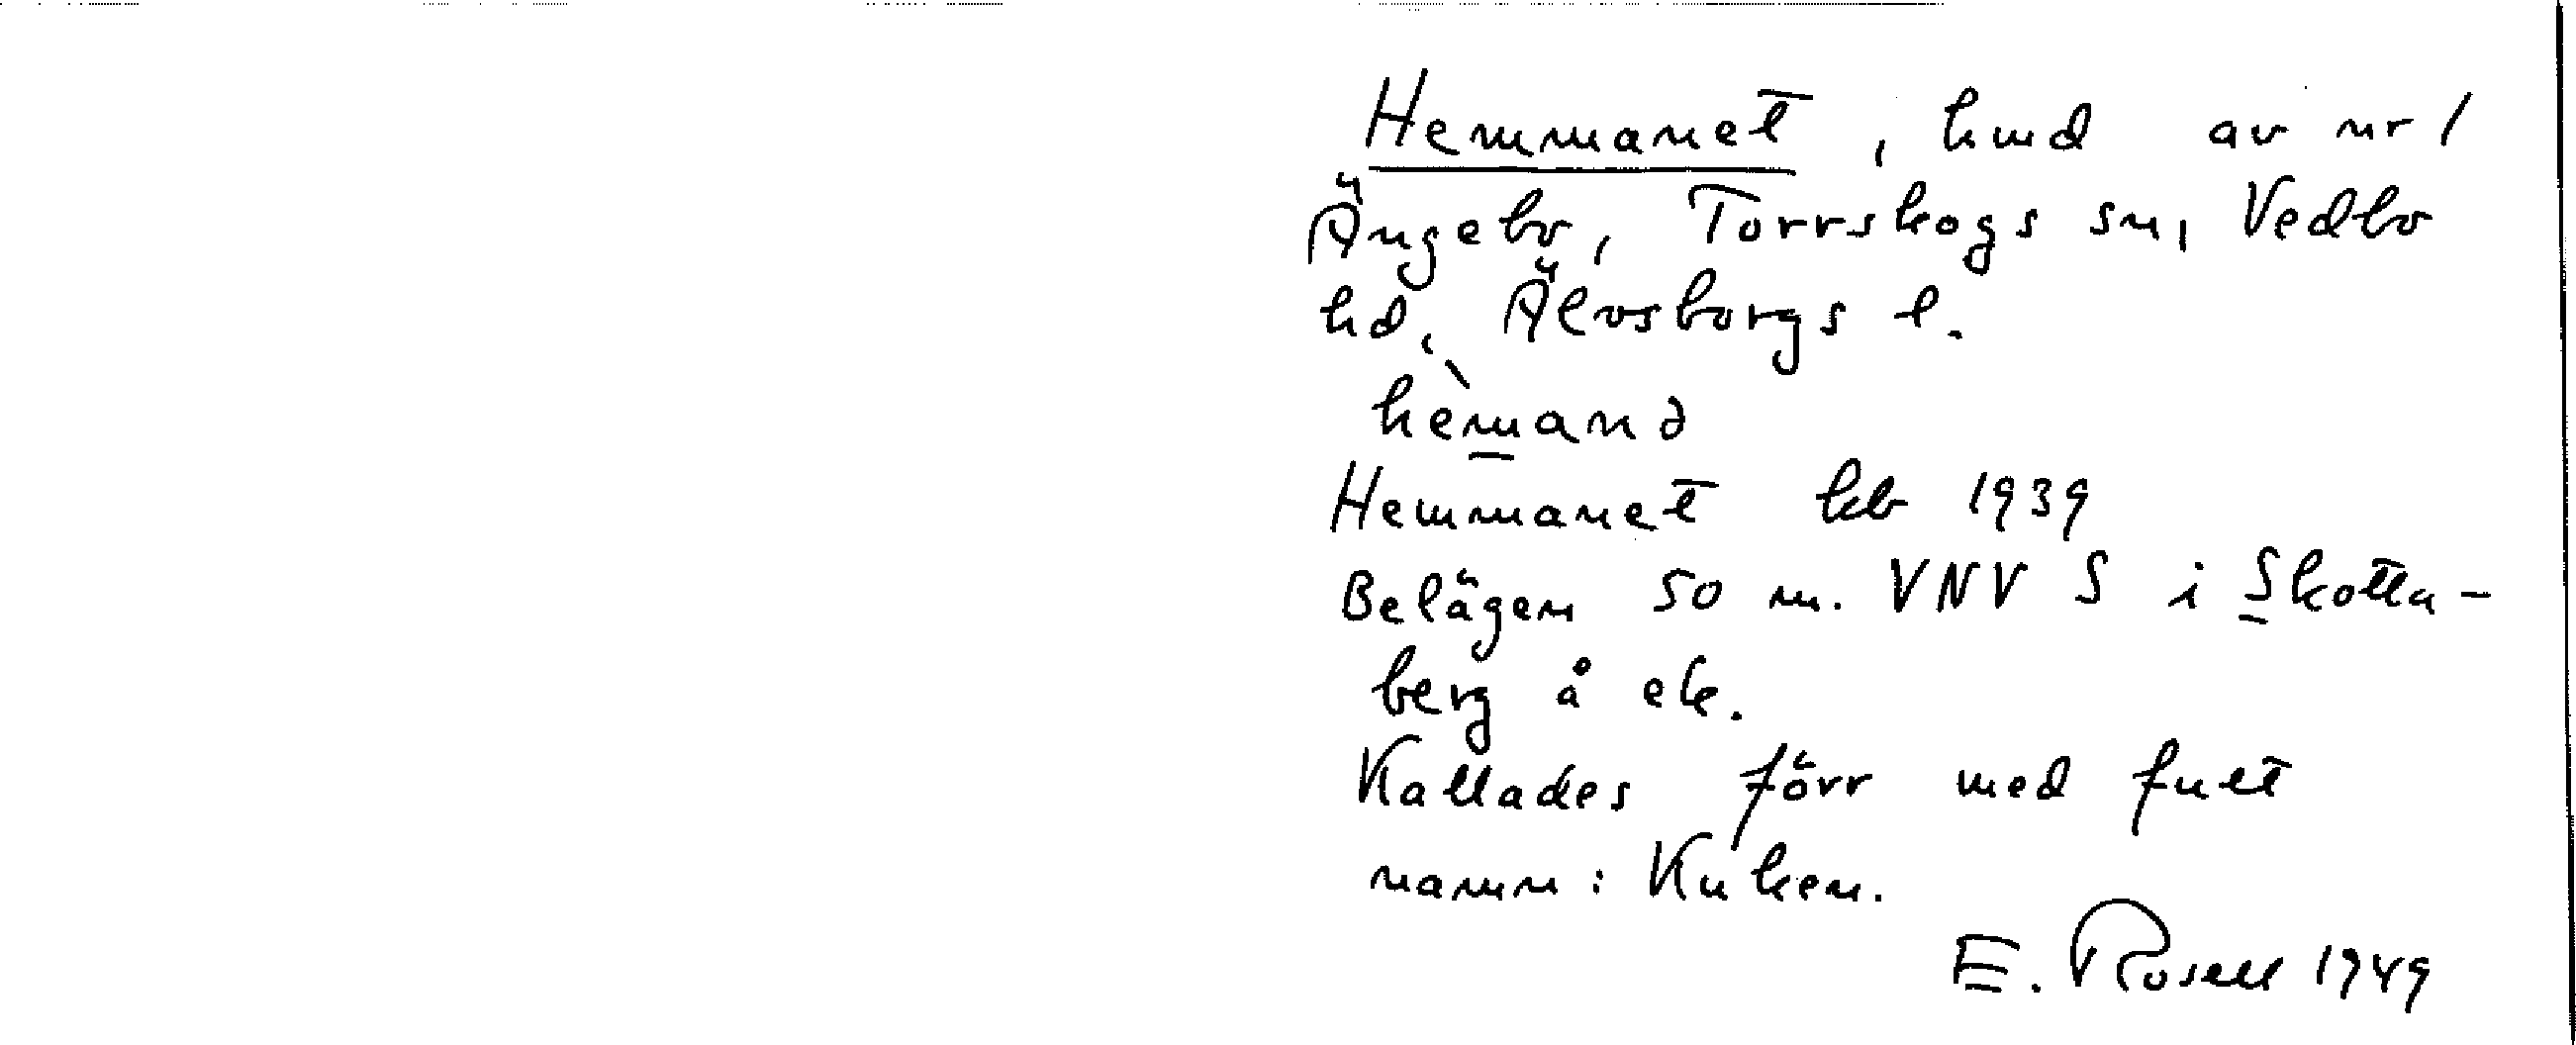 Hemmanet, hmd av nr 1
Ängebo, Torrskogs sn, Vedbo
hd, Älvsborgs l.
hèmanə
Hemmanet kb 1939
Belägen 50 m. VNV S i Skotta-
berg å ek.
Kallades förr med fult
namn: Kuken.
E. Rosell 1949